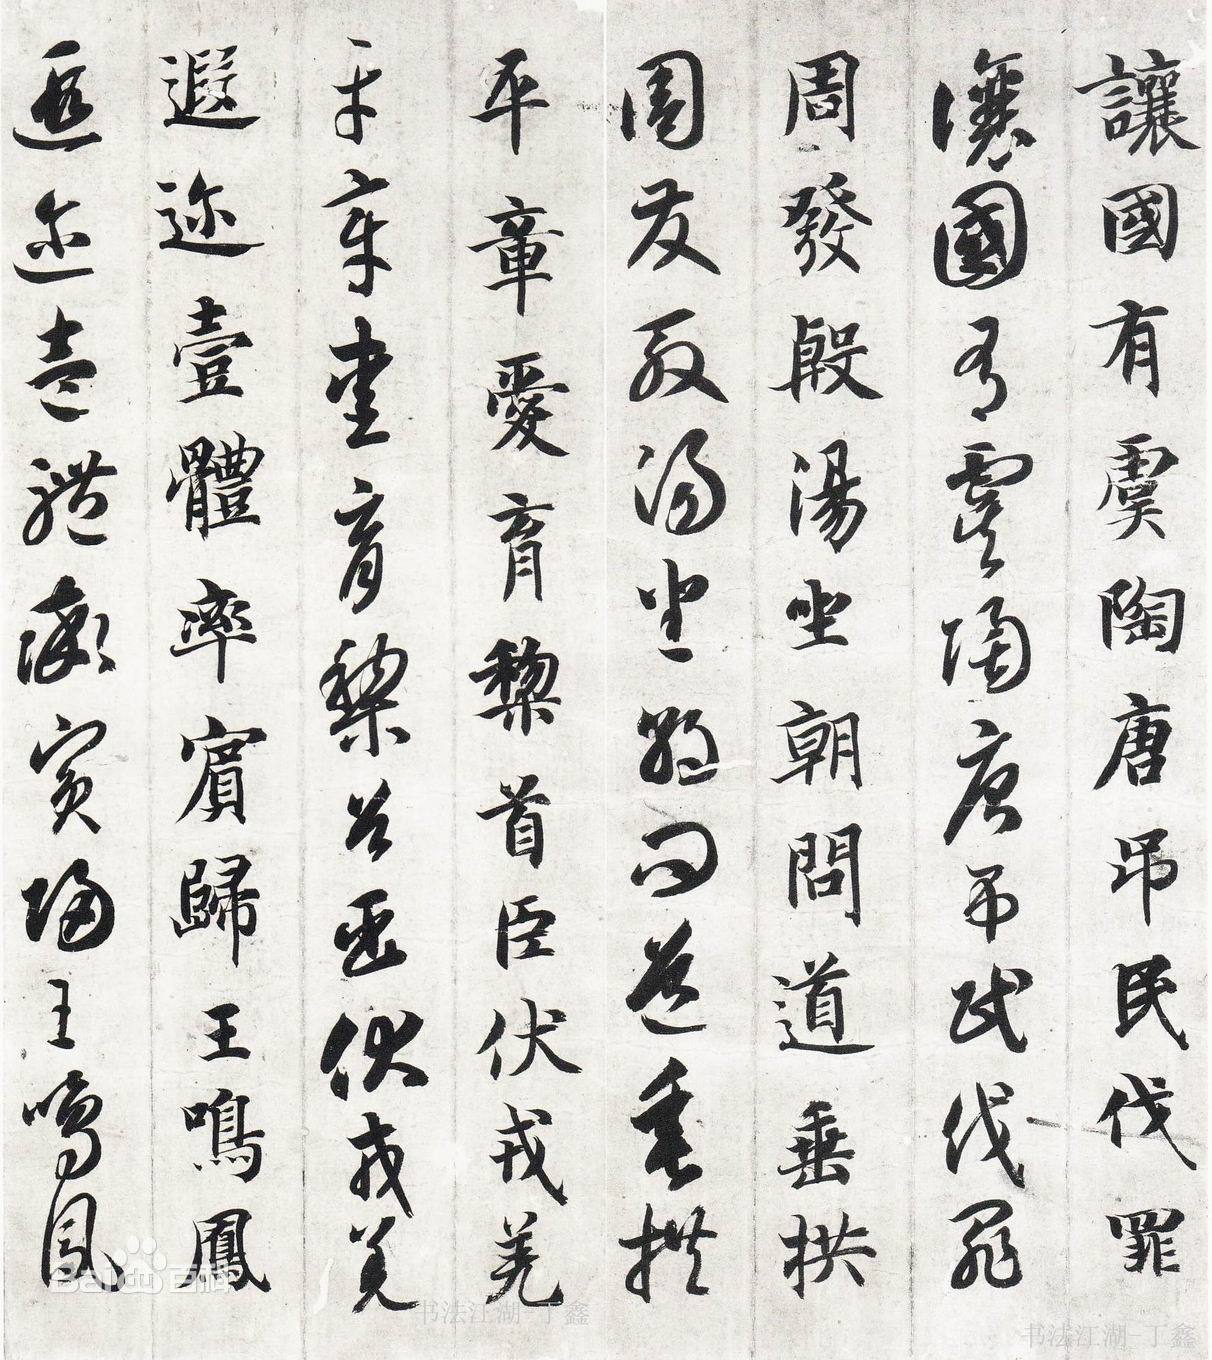 讓國有虞陶唐吊民伐罪
讓國有虞陶唐吊民伐罪
周發殷湯坐朝問道垂拱
周發殷湯坐朝問道垂拱
平章愛育黎首臣伏戎羌
平章愛育黎首臣伏戎羌
遐邇壹體率賓歸王鳴鳳
遐邇壹體率賓歸王鳴鳳
Baidu百科
书法江湖-丁鑫
书法江湖-丁鑫